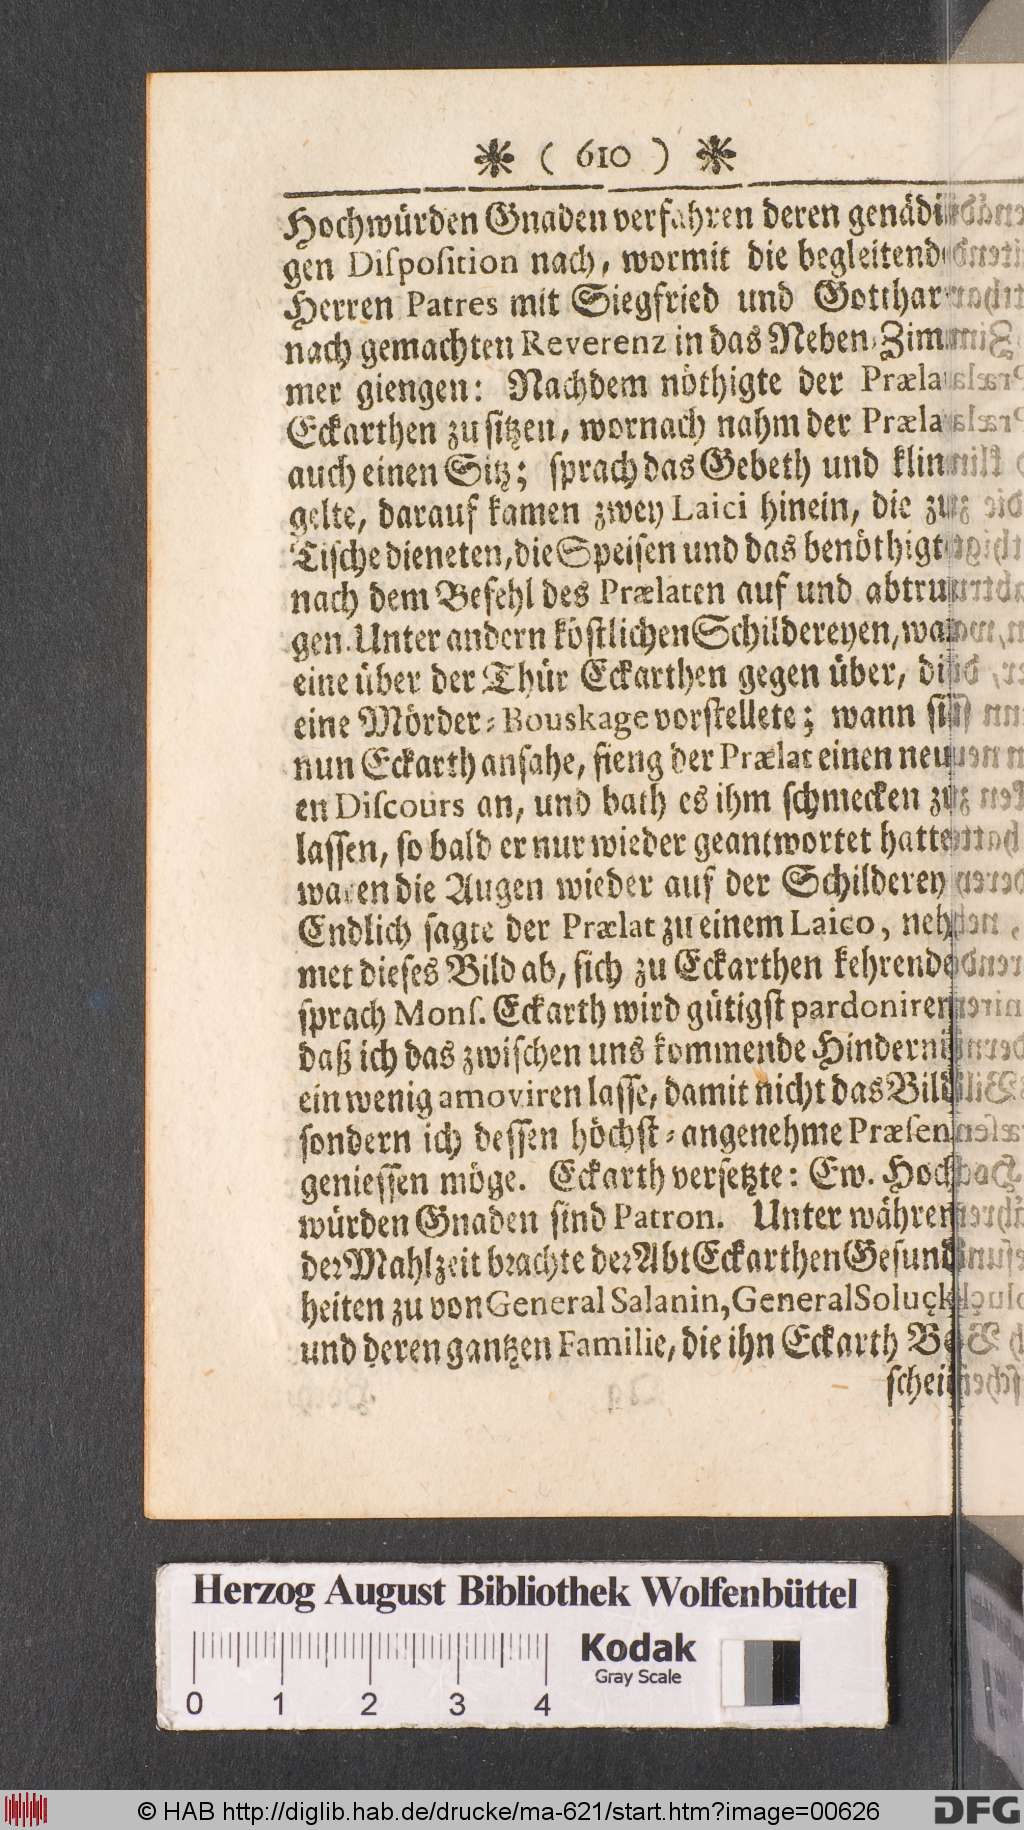 ❋ ( 610 ) ❋
Hochwürden Gnaden verfahren deren genädi
gen Disposition nach, wormit die begleitend
Herren Patres mit Siegfried und Gotthar
nach gemachten Reverenz in das Neben-Zim
mer giengen: Nachdem nöthigte der Præla
Eckarthen zu sitzen, wornach nahm der Præla
auch einen Sitz; sprach das Gebeth und klin
gelte, darauf kamen zwey Laici hinein, die zu
Tische dieneten, die Speisen und das benöthigt
nach dem Befehl des Prælaten auf und abtru
gen. Unter andern köstlichen Schildereyen, wa
eine über der Thür Eckarthen gegen über, di
eine Mörder-Bouskage vorstellete; wann si
nun Eckarth ansahe, fieng der Prælat einen neu
en Discours an, und bath es ihm schmecken zu
lassen, so bald er nur wieder geantwortet hatte
waren die Augen wieder auf der Schilderey
Endlich sagte der Prælat zu einem Laico, neh
met dieses Bild ab, sich zu Eckarthen kehrend
sprach Mons. Eckarth wird gütigst pardoniren
daß ich das zwischen uns kommende Hinderni
ein wenig amoviren lasse, damit nicht das Bild
sondern ich dessen höchst-angenehme Præsen
geniessen möge. Eckarth versetzte: Ew. Hoch
würden Gnaden sind Patron. Unter währen
der Mahlzeit brachte der Abt Eckarthen Gesund
heiten zu von General Salanin, General Soluçk
und deren gantzen Familie, die ihn Eckarth Be
schei
Herzog August Bibliothek Wolfenbüttel
0 1 2 3 4
Kodak
Gray Scale
© HAB http://diglib.hab.de/drucke/ma-621/start.htm?image=00626
DFG